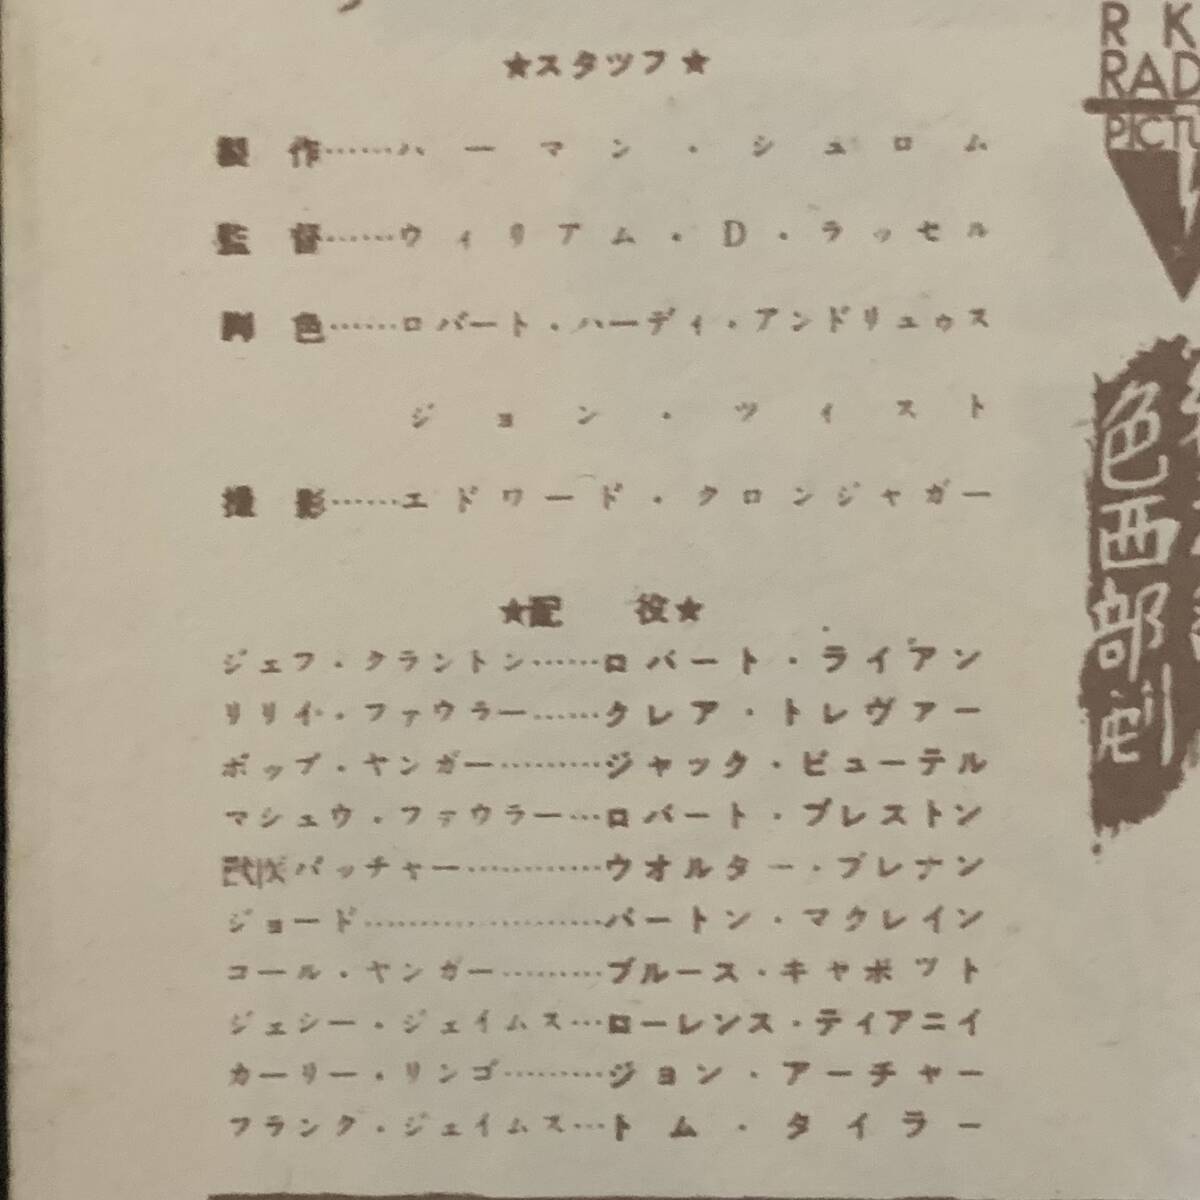 ★スタッフ★
製作……ハーマン・シュロム
監督……ウィリアム・D・ラッセル
脚色……ロバート・ハーディ・アンドリュゥス
ジョン・ツィスト
撮影……エドワード・クロンジャガー
★配役★
ジェフ・クラントン……ロバート・ライアン
リリイ・ファウラー……クレア・トレヴァー
ボップ・ヤンガー………ジャック・ビューテル
マシュウ・ファウラー…ロバート・プレストン
パッチャー…………ウオルター・ブレナン
ジョード…………………バートン・マクレイン
コール・ヤンガー………ブルース・キャボット
ジェシー・ジェイムス…ローレンス・ティアニイ
カーリー・リンゴ………ジョン・アーチャー
フランク・ジェイムス…トム・タイラー
RK
RAD
PICTU
色西部劇